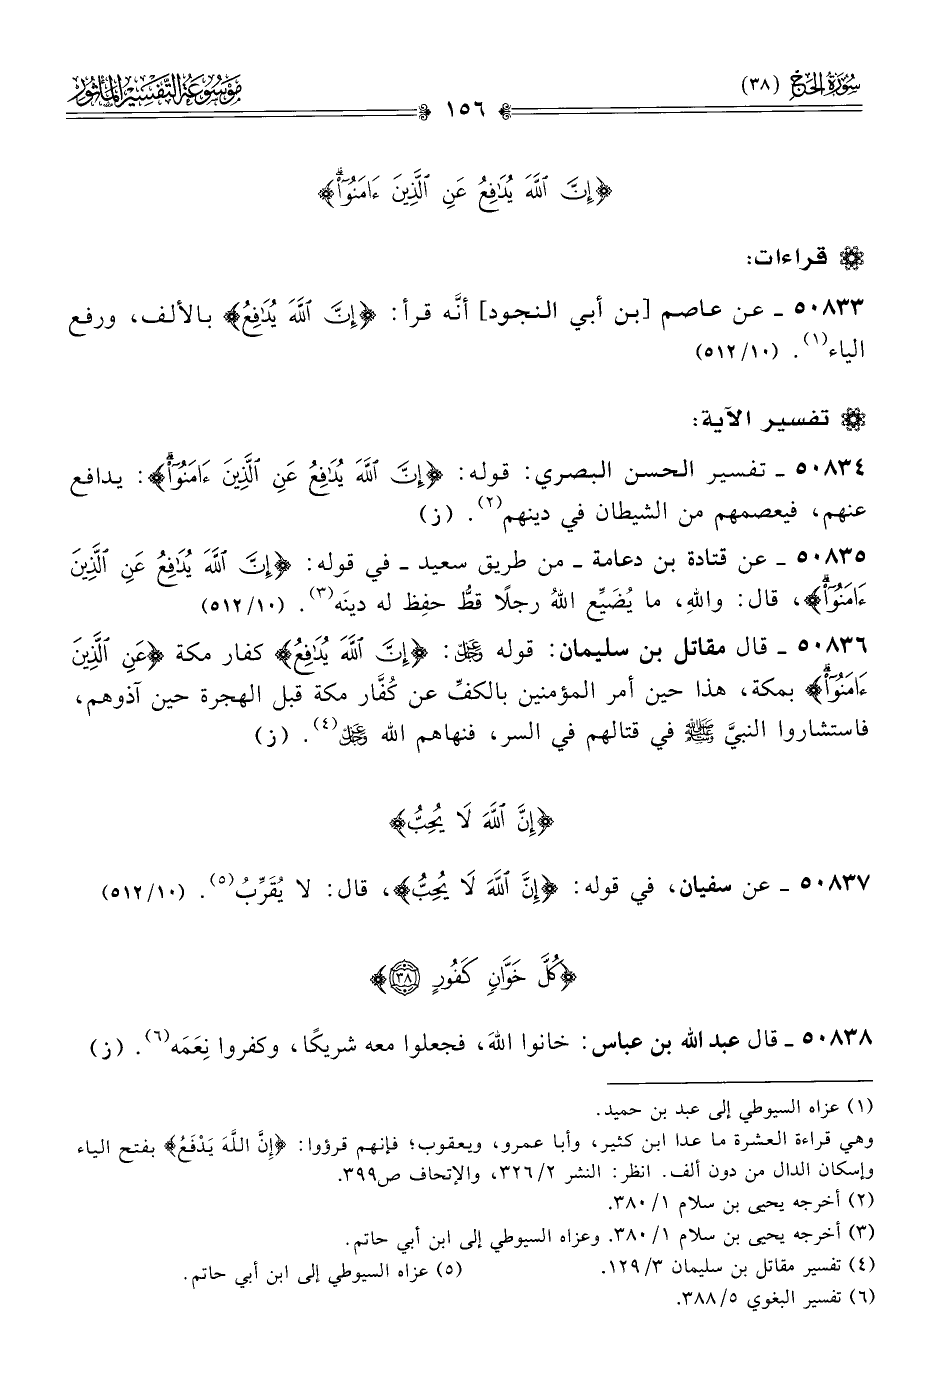 سُورَةُ الحَجّ (٣٨)
١٥٦
مَوْسُوعَةُ التَّفْسِيرِ المَأثُور
﴿إِنَّ ٱللَّهَ يُدَٰفِعُ عَنِ ٱلَّذِينَ ءَامَنُوٓا۟ۗ﴾
قراءات:
٥٠٨٣٣ ـ عن عاصم [بن أبي النجود] أنَّه قرأ: ﴿إِنَّ ٱللَّهَ يُدَٰفِعُ﴾ بالألف، ورفع
الياء(١). (٥١٢/١٠)
تفسير الآية:
٥٠٨٣٤ ـ تفسير الحسن البصري: قوله: ﴿إِنَّ ٱللَّهَ يُدَٰفِعُ عَنِ ٱلَّذِينَ ءَامَنُوٓا۟ۗ﴾: يدافع
عنهم، فيعصمهم من الشيطان في دينهم(٢). (ز)
٥٠٨٣٥ ـ عن قتادة بن دعامة ـ من طريق سعيد ـ في قوله: ﴿إِنَّ ٱللَّهَ يُدَٰفِعُ عَنِ ٱلَّذِينَ
ءَامَنُوٓا۟ۗ﴾، قال: واللهِ، ما يُضَيِّع اللهُ رجلًا قطُّ حفِظ له دينَه(٣). (٥١٢/١٠)
٥٠٨٣٦ ـ قال مقاتل بن سليمان: قوله ﷿: ﴿إِنَّ ٱللَّهَ يُدَٰفِعُ﴾ كفار مكة ﴿عَنِ ٱلَّذِينَ
ءَامَنُوٓا۟ۗ﴾ بمكة، هذا حين أمر المؤمنين بالكفِّ عن كُفَّار مكة قبل الهجرة حين آذوهم،
فاستشاروا النبيَّ ﷺ في قتالهم في السر، فنهاهم الله ﷿(٤). (ز)
﴿إِنَّ ٱللَّهَ لَا يُحِبُّ﴾
٥٠٨٣٧ ـ عن سفيان، في قوله: ﴿إِنَّ ٱللَّهَ لَا يُحِبُّ﴾، قال: لا يُقَرِّبُ(٥). (٥١٢/١٠)
﴿كُلَّ خَوَّانٍ كَفُورٍ ٣٨﴾
٥٠٨٣٨ ـ قال عبد الله بن عباس: خانوا اللهَ، فجعلوا معه شريكًا، وكفروا نِعَمَه(٦). (ز)
(١) عزاه السيوطي إلى عبد بن حميد.
وهي قراءة العشرة ما عدا ابن كثير، وأبا عمرو، ويعقوب؛ فإنهم قرؤوا: ﴿إِنَّ اللَّهَ يَدْفَعُ﴾ بفتح الياء
وإسكان الدال من دون ألف. انظر: النشر ٣٢٦/٢، والإتحاف ص٣٩٩.
(٢) أخرجه يحيى بن سلام ٣٨٠/١.
(٣) أخرجه يحيى بن سلام ٣٨٠/١. وعزاه السيوطي إلى ابن أبي حاتم.
(٤) تفسير مقاتل بن سليمان ١٢٩/٣. (٥) عزاه السيوطي إلى ابن أبي حاتم.
(٦) تفسير البغوي ٣٨٨/٥.